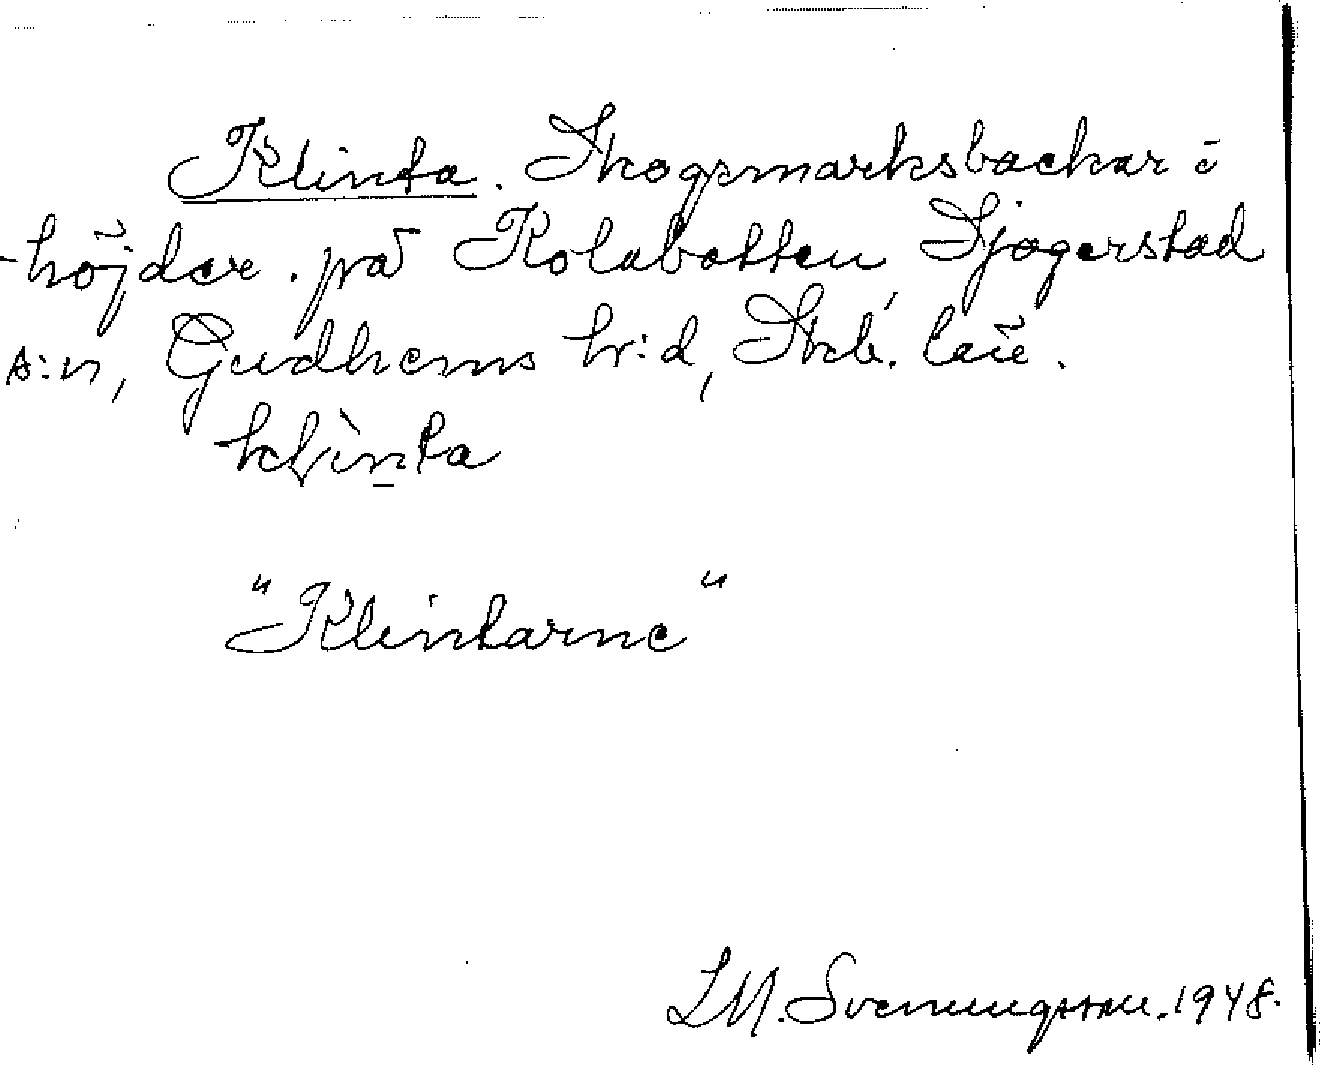 Klinta. Skogsmarksbackar i
-höjder. på Kolabotten, Sjogerstad
s:n, Gudhems hr:d, Skb. län.
klìnta
"Klintarne"
LM. Svenungsson. 1948.